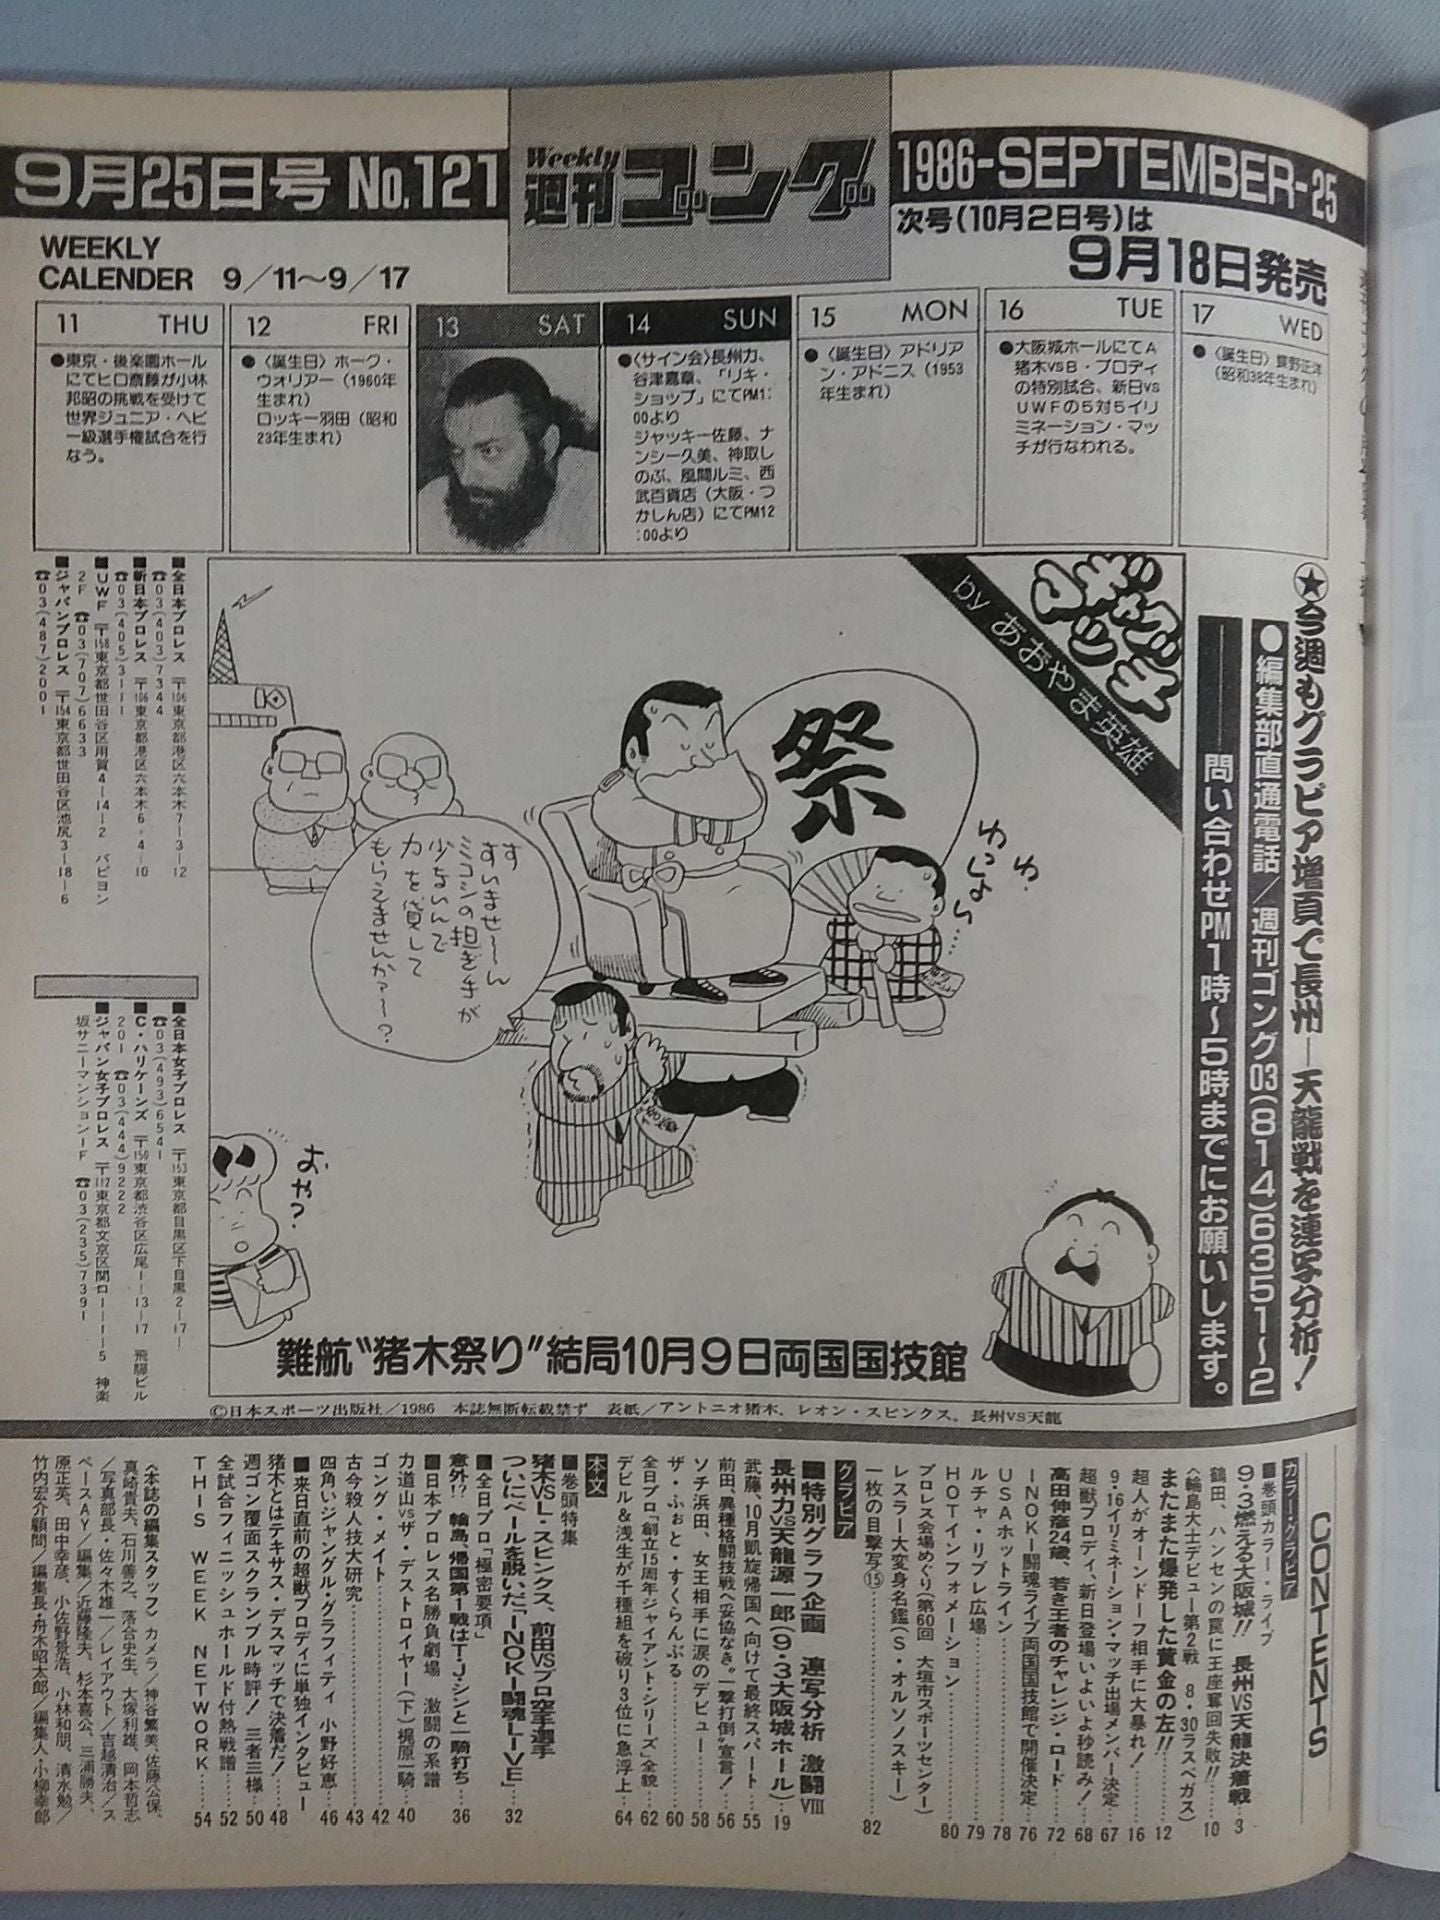 9月25日号 No.121
Weekly
週刊ゴング
1986-SEPTEMBER-25
次号(10月2日号)は
9月18日発売
WEEKLY
CALENDER 9/11〜9/17
11 THU
●東京・後楽園ホール
にてヒロ斎藤が小林
邦昭の挑戦を受けて
世界ジュニア・ヘビ
ー級選手権試合を行
なう。
12 FRI
●〈誕生日〉ホーク・
ウォリアー(1960年
生まれ)
ロッキー羽田(昭和
23年生まれ)
13 SAT
14 SUN
●〈サイン会〉長州力、
谷津嘉章、「リキ・
ショップ」にてPM1:
00より
ジャッキー佐藤、ナ
ンシー久美、神取し
のぶ、風間ルミ、西
武百貨店(大阪・つ
かしん店)にてPM12
:00より
15 MON
●〈誕生日〉アドリア
ン・アドニス(1953
年生まれ)
16 TUE
●大阪城ホールにてA
猪木vsB・ブロディ
の特別試合、新日vs
UWFの5対5イリ
ミネーション・マッ
チが行なわれる。
17 WED
●〈誕生日〉蝶野正洋
(昭和38年生まれ)
★今週もグラビア増頁で長州―天龍戦を連写分析!
●編集部直通電話/週刊ゴング03(814)6351〜2
問い合わせPM1時〜5時までにお願いします。
ギャグマッチ
by あおやま英雄
祭
わ、わっしょい…
すすいませ〜ん
ミコシの担ぎ手が
少ないんで
力を貸して
もらえませんか?〜?
おや?
難航“猪木祭り”結局10月9日両国国技館
■全日本プロレス 〒106東京都港区六本木7-3-12
☎03(403)7344
■新日本プロレス 〒106東京都港区六本木6-4-10
☎03(405)3111
■UWF 〒158東京都世田谷区用賀4-14-2 パピヨン
2F ☎03(707)6633
■ジャパンプロレス 〒154東京都世田谷区池尻3-18-6
☎03(487)2001
■全日本女子プロレス 〒153東京都目黒区下目黒2-17-
☎03(493)6541
■C・ハリケーンズ 〒150東京都渋谷区広尾1-13-17 飛騨ビル
201 ☎03(444)9222
■ジャパン女子プロレス 〒112東京都文京区関口1-1-5 神楽
坂サニーマンション1F ☎03(235)7391
©日本スポーツ出版社/1986 本誌無断転載禁ず 表紙/アントニオ猪木、レオン・スピンクス、長州vs天龍
CONTENTS
カラー・グラビア
■巻頭カラー・ライブ
9・3燃える大阪城!! 長州VS天龍決着戦…3
鶴田、ハンセンの罠に王座奪回失敗!!…10
〈輪島大士デビュー第2戦 8・30ラスベガス〉
またまた爆発した黄金の左!!…12
超人がオーンドーフ相手に大暴れ!…16
9・16イリミネーション・マッチ出場メンバー決定…67
超獣ブロディ、新日登場いよいよ秒読み!…68
高田伸彦24歳、若き王者のチャレンジ・ロード…72
INOKI闘魂ライブ両国国技館で開催決定…76
USAホットライン…78
ルチャ・リブレ広場…79
HOTインフォメーション…80
プロレス会場めぐり(第60回 大垣市スポーツセンター)
レスラー大変身名鑑(S・オルソノスキー)
一枚の目撃写⑮…82
グラビア
■特別グラフ企画 連写分析 激闘Ⅷ
長州力VS天龍源一郎(9・3大阪城ホール)…19
武藤、10月凱旋帰国へ向けて最終スパート…55
前田、異種格闘技戦へ妥協なき“一撃打倒”宣言!…56
ソチ浜田、女王相手に涙のデビュー…58
ザ・ふぉと・すくらんぶる…60
全日プロ「創立15周年ジャイアント・シリーズ」全貌…62
デビル&浅生が千種組を破り3位に急浮上…64
本文
■巻頭特集
猪木VSL・スピンクス、前田VSプロ空手選手
ついにベールを脱いだ「INOKI闘魂LIVE」…32
■全日プロ「極密要項」
意外!? 輪島、帰国第1戦はT・J・シンと一騎打ち…36
■日本プロレス名勝負劇場 激闘の系譜
力道山vsザ・デストロイヤー(下)梶原一騎…40
ゴング・メイト…42
古今殺人技大研究…43
四角いジャングル・グラフィティ 小野好恵…46
■来日直前の超獣ブロディに単独インタビュー
猪木とはテキサス・デスマッチで決着だ!…48
週ゴン覆面スクランブル時評! 三者三様…50
全試合フィニッシュホールド付熱戦譜…52
THIS WEEK NETWORK…54
〈本誌の編集スタッフ〉カメラ/神谷繁美、佐藤公保、
真崎貴夫、石川善之、落合史生、大塚利雄、岡本哲志
/写真部長・佐々木雄一/レイアウト/吉越清治/ス
ペースAY/編集/近藤隆夫、杉本喜公、三浦勝夫、
原正英、田中幸彦、小佐野景浩、小林和朋、清水勉/
竹内宏介顧問/編集長・舟木昭太郎/編集人・小柳幸郎